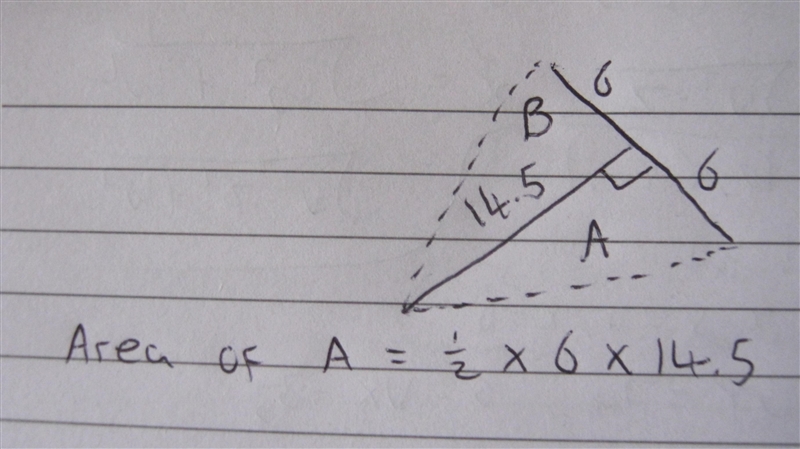 6
B
14.5
6
A
Area of A = ½ × 6 × 14.5